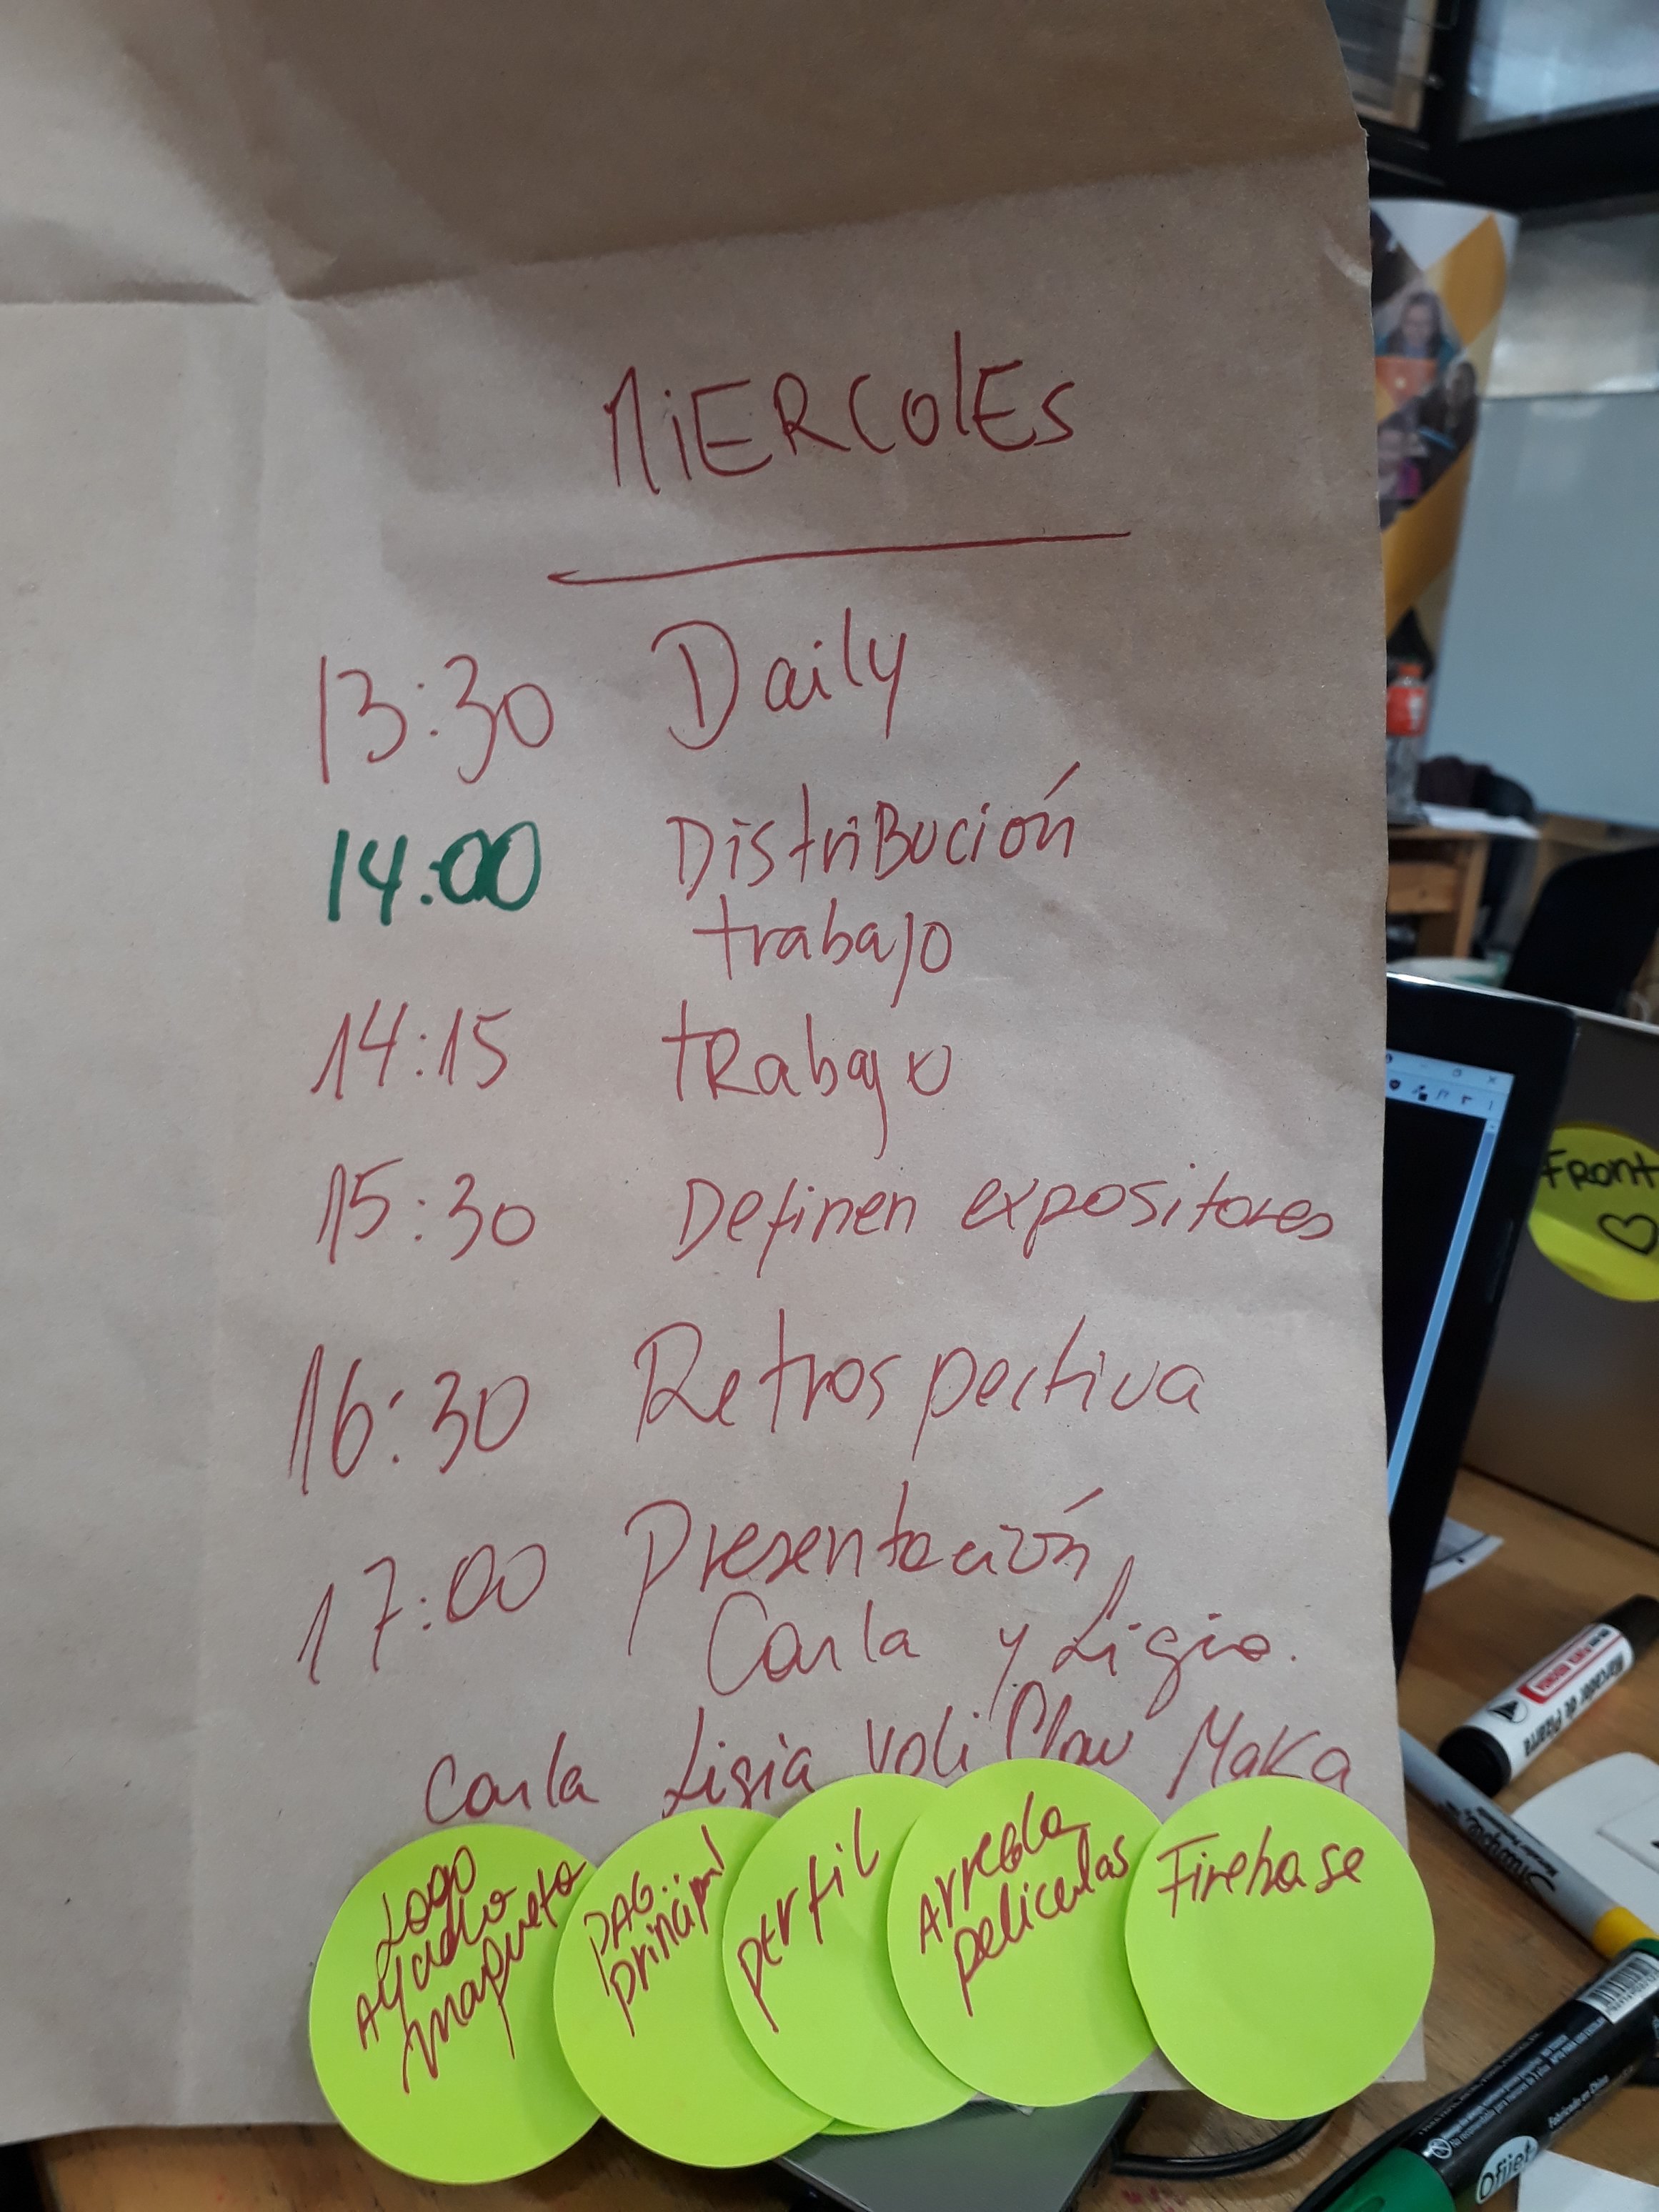 MiERColEs
13:30 Daily
14:00 DistriBución
trabajo
14:15 tRabajo
15:30 Definen expositores
16:30 Retrospectiva
17:00 Presentación
Carla y Ligia.
Carla Ligia Yoli Clau Maka
Logo
Ayudo
maqueta
PAG..
principal
PErfil
Arregla
peliculas
Firebase
FRONT
Marcador de Pizarra
Sharpie
Ofijet